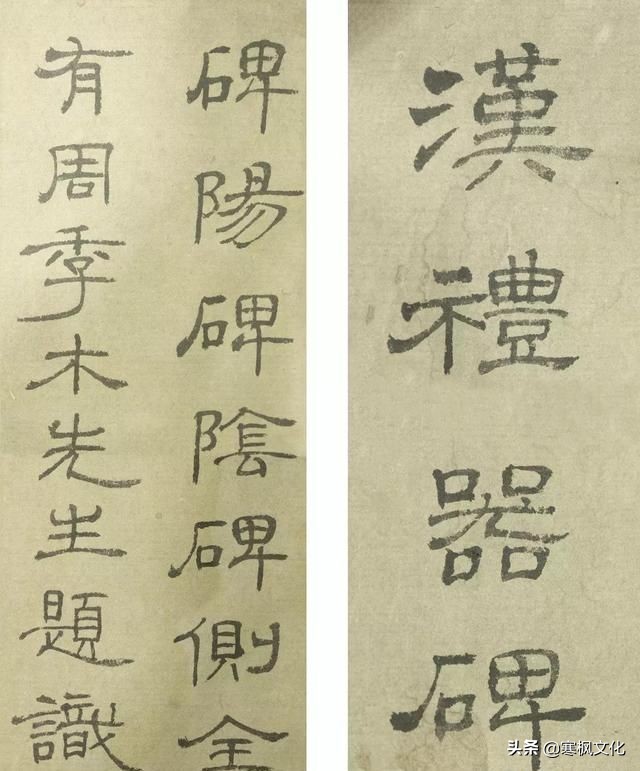 漢禮器碑
碑陽碑陰碑側全
有周季木先生題識
头条 @寒枫文化